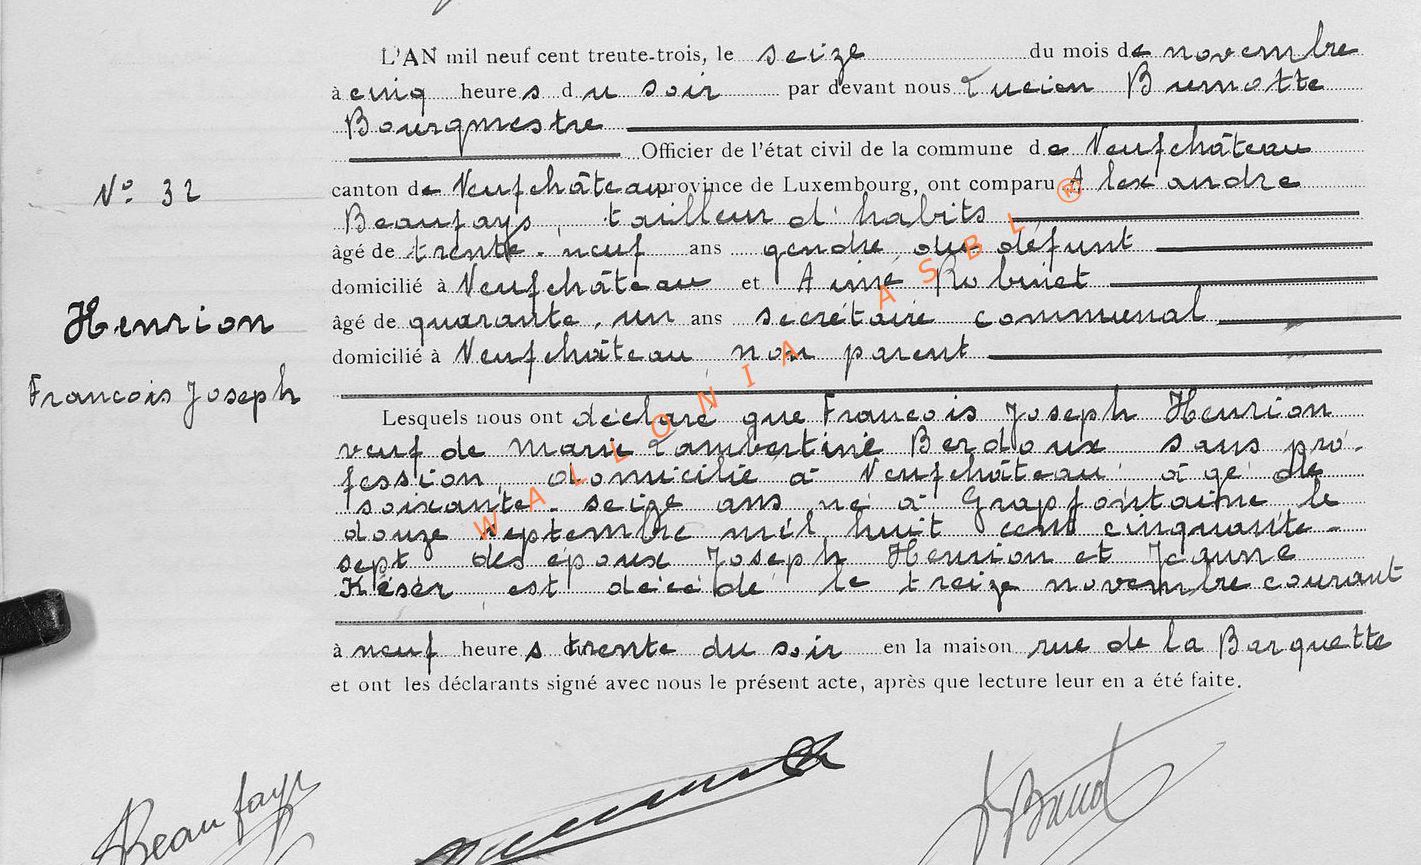 L'AN mil neuf cent trente-trois, le seize du mois de novembre
à cinq heures du soir par devant nous Lucien Burnotte
Bourgmestre
Officier de l'état civil de la commune de Neufchâteau
N° 32
canton de Neufchâteau province de Luxembourg, ont comparu Alexandre
Beaufays, tailleur d'habits
âgé de trente-neuf ans gendre du défunt
domicilié à Neufchâteau et Aimé Robinet
Henrion
âgé de quarante-un ans secrétaire communal
domicilié à Neufchâteau non parent
Francois Joseph
Lesquels nous ont déclaré que Francois Joseph Henrion
veuf de Marie Lambertine Berdoux sans pro-
fession, domicilié à Neufchâteau âgé de
soixante-seize ans né à Grapfontaine le
douze septembre mil huit cent cinquante-
sept des époux Joseph Henrion et Jeanne
Késer est décédé le treize novembre courant
à neuf heures trente du soir en la maison rue de la Barquette
et ont les déclarants signé avec nous le présent acte, après que lecture leur en a été faite.
Beaufays
WALLONIA ASBL ®